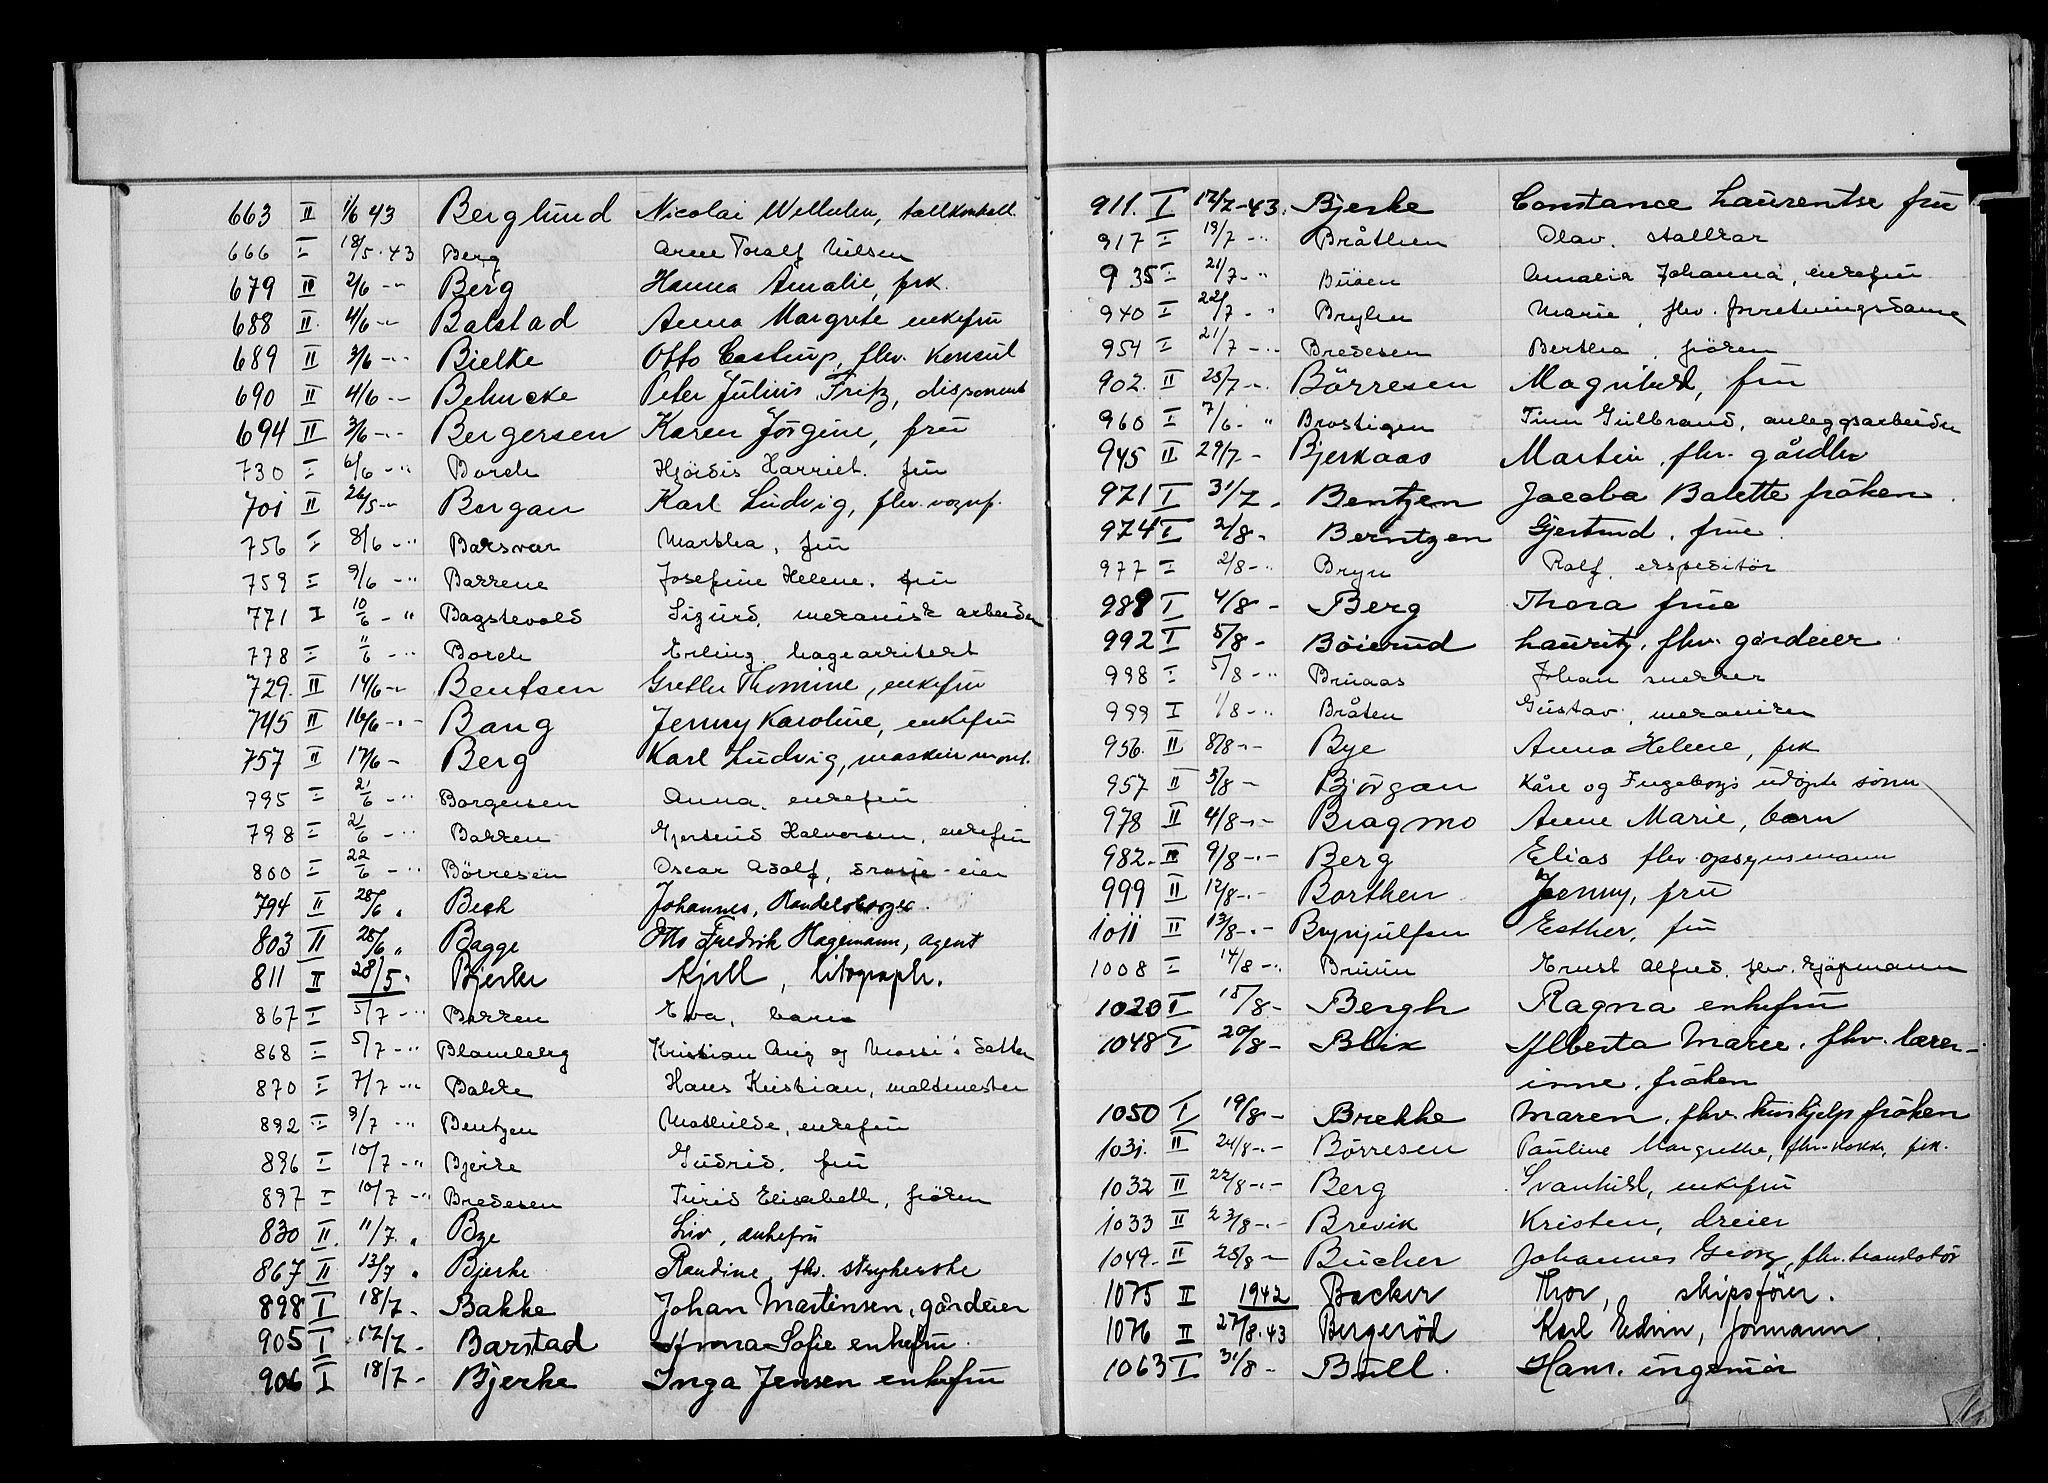 663 II 1/6 43 Berglund Nicolai Wilhelm, tollkontroll.
666 I 18/5 - 43 Berg Arne Toralf Nilsen
679 II 2/6 -"- Berg Hanna Amalie, frk.
688 II 4/6 -"- Balstad Anna Margrete enkefru
689 II 3/6 -"- Bielke Otto Castrup, fhv. konsul
690 II 4/6 -"- Behncke Peter Julius Fritz, disponent
694 II 3/6 -"- Bergersen Karen Jørgine, frue
730 I 6/6 -"- Borch Hjördis Harriet. fru
701 II 26/5 -"- Bergan Karl Ludvig, fhv. vognf.
756 I 8/6 -"- Barsvar Martha, fru
759 I 9/6 -"- Barrene Josefine Helene. fru
771 I 10/6 -" Bagstevold Sigurd, mekanisk arbeider
778 I 11/6 -"- Borch Erling. hagearkitekt
729. II 14/6 -"- Bentsen Grethe Thomine, enkefru
745 II 16/6 -"- Bang Jenny Karoline, enkefru
757 II 17/6 - Berg Karl Ludvig, maskinmont.
795 I 21/6 -"- Borgersen Anna. enkefru
798 I 21/6 -"- Bakken Gjertrud Halvorsen, enkefru
800 I 22/6 -"- Børresen Oscar Adolf, drosje-eier
794 II 28/6 " Bech Johannes, Handelsborger.
803 II 28/6 " Bagge Otto Fredrik Hagemann, agent
811 II 28/5 " Bjerke Kjell, litograph.
867 I 5/7 -"- Bakken Eva, barn
868 I 5/7 -"- Blomberg Kristian Aug og Mossi's datter
870 I 7/7 -"- Bakke Hans Kristian, malemester
892 I 9/7 -"- Bentzen Mathilde, enkefru
896 I 10/7 -"- Bjerke Gudrid, fru
897 I 10/7 -"- Bredesen Turid Elisabeth, frøken
830 II. 11/7. " Bye Liv, enkefru
867 II 13/7 " Bjerke Randine, fhv. strykerske
898 I 18/7. - Bakke Johan Martinsen, gårdeier
905 I 17/7 - Barstad Anna Sofie enkefru.
906 I 18/7 - Bjerke Inga Jensen enkefru
911. I 17/7 - 43. Bjerke Constance Laurentse fru
917 I 19/7 -"- Bråthen Olav. stallkar
935 I 21/7 -" Buøen Amalia Johanna, enkefru
940 I 22/7 -" Brylen Marie, fhv. forretningsdame
954 I 21/7 -"- Bredesen Bertha, frøken
902. II 25/7 -"- Børresen Magnhild, fru
960 I 7/6 - " Brostigen Finn Gulbrand, anleggsarbeider
945 II 29/7 - Bjerkaas Martin, fhv. gårdbr
971 I 31/7 - Bentzen Jacoba Balette frøken.
974 I 2/8 - Berntzen Gjertrud. frue.
977 I 2/8 -"- Bryn Rolf. ekspeditør
988 I 4/8 - Berg Thora frue
992 I 5/8 - Böierud Lauritz. fhv. gårdeier.
998 I 5/8 -"- Bruaas Johan snekker
999 I 1/8 -"- Bråten Gustav, mekaniker
956. II 8/8 -"- Bye Anna Helene, frk
957 II 3/8 - Bjørgan Kåre og Ingeborgs udöpte sönn
978 II 4/8 -"- Bragmo Anne Marie, barn
982 - II 9/8 -"- Berg Elias fhv. opsynsmann
999 II 12/8 -"- Borthen Jenny, fru
1011 II 13/8 -"- Brynjulfsen Esther, fru
1008 I 14/8 -"- Bruun Ernst Alfred. fhv. kjøpmann
1020 I 15/8 - Bergh Ragna enkefru
1048 I 20/8 - Blix Alberta Marie. fhv. lærer-
inne. frøken
1050 I 19/8 - Brekke Maren. fhv. hushjelp frøken
1031. II 24/8 -"- Børresen Pauline Margrethe, fhv. kokke, frk.
1032 II 22/8 -"- Berg Svanhild, enkefru
1033 II 23/8 -"- Brevik Kristen, dreier
1049. II 25/8 - Bucher Johannes Georg, fhv. translatør
1075 II 1942 Backer Thor, skipsfører.
1076 II 27/8 - 43 Bergerød Karl Edvin, formann.
1063 I 31/8 - Bull. Hans. ingeniør